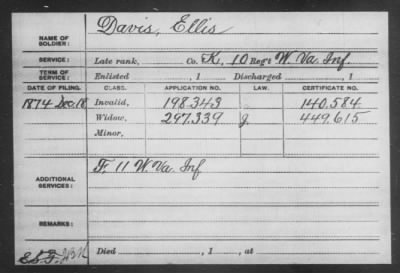 NAME OF SOLDIER: Davis, Ellis
SERVICE: Late rank, Co. K, 10 Reg't W. Va. Inf.
TERM OF SERVICE: Enlisted , 1 Discharged , 1
DATE OF FILING. CLASS. APPLICATION NO. LAW. CERTIFICATE NO.
1874 Dec. 18 Invalid, 198.343 140.584
Widow, 297.339 g. 449.615
Minor,
ADDITIONAL SERVICES: F. 11 W. Va. Inf
REMARKS:
Died , 1 , at